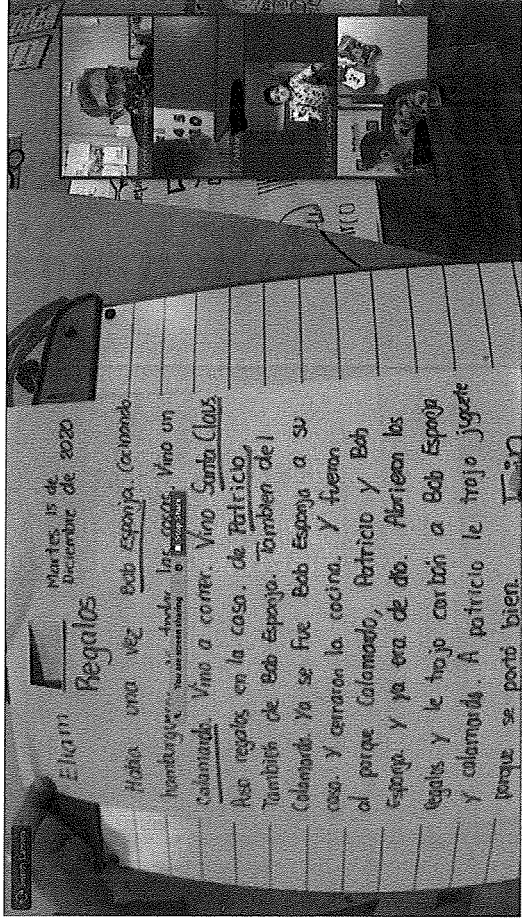 Elam
Martes 15 de
Diciembre de 2020
Regalos
Había una vez Bob Esponja Cocinando
las casas. Vino un
You are screen sharing
Stop Share
Calamardo. Vino a comer. Vino Santa Claus
Puso regalos en la casa. de Patricio
También de Bob Esponja. Tambien del
Calamardo Ya se fue Bob Esponja a su
casa. Y cerraron la cocina. Y fueron
al parque Calamardo, Patricio y Bob
Esponja. Y ya era de día. Abrieron los
Regalos y le trajo carbón a Bob Esponja
y calamardo. A patricio le trajo juguete
porque se portó bien.
Fin